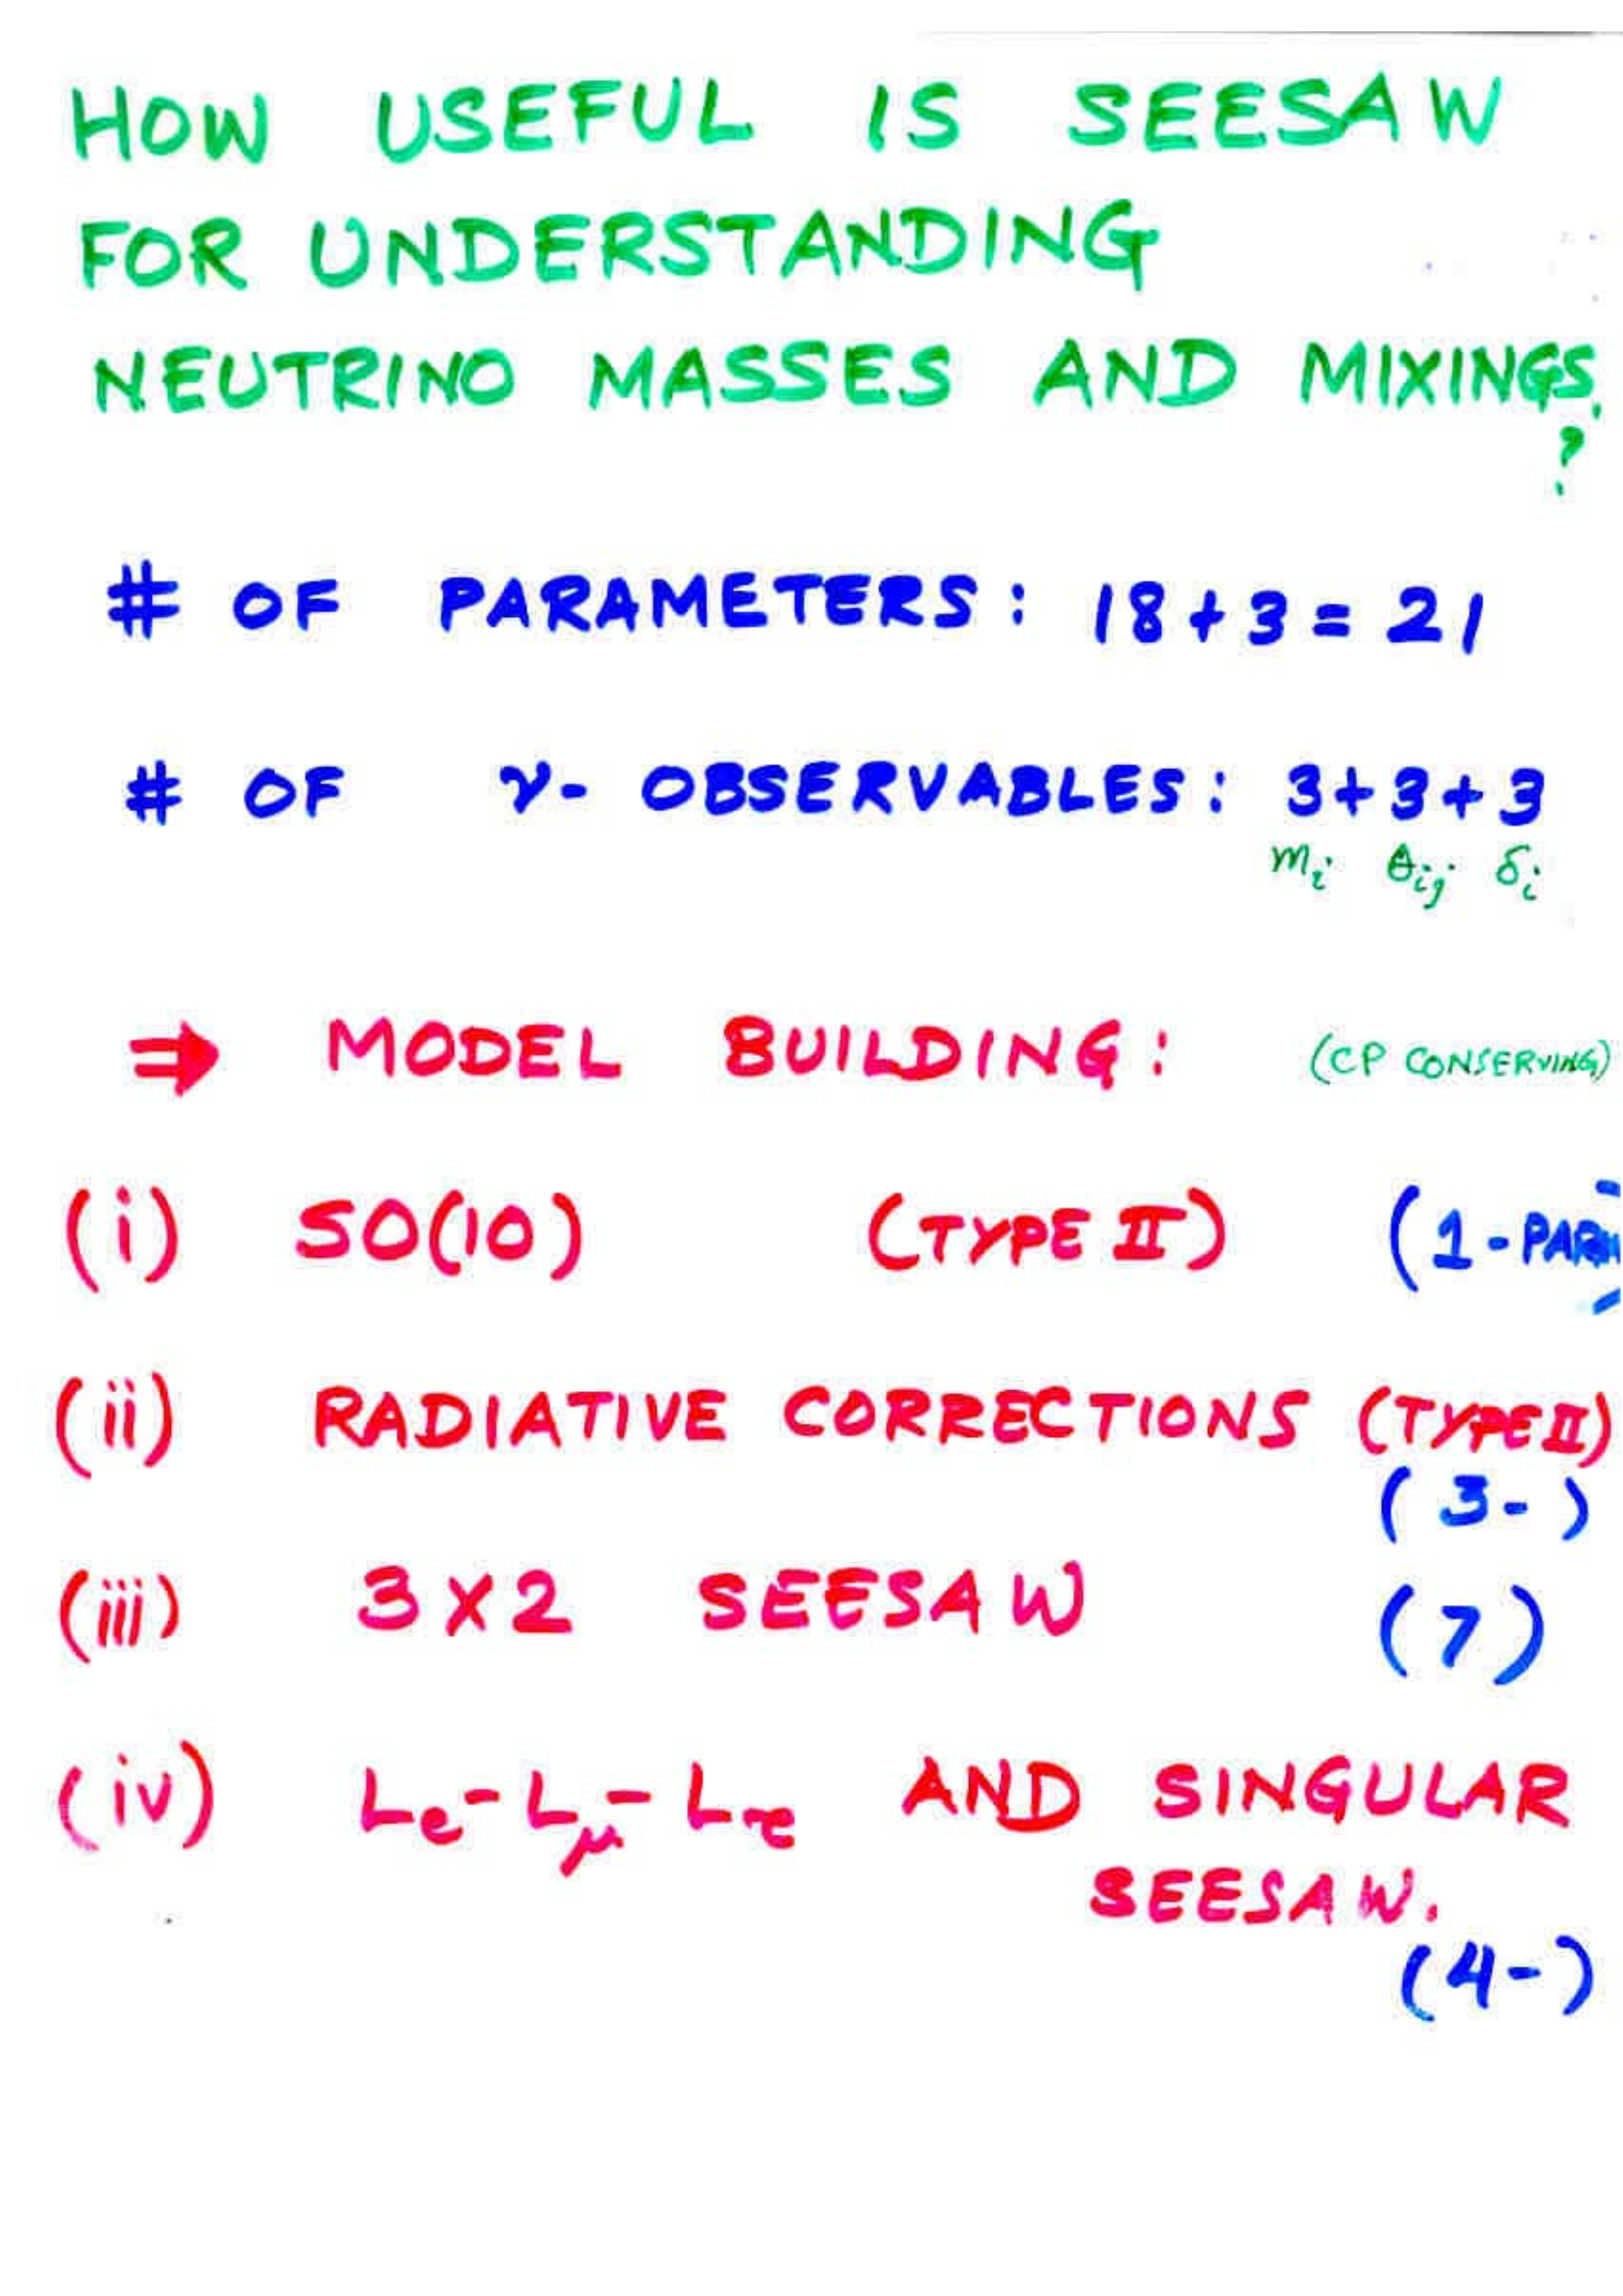 HOW USEFUL IS SEESAW
FOR UNDERSTANDING
NEUTRINO MASSES AND MIXINGS,
?
# OF PARAMETERS: 18+3=21
# OF ν- OBSERVABLES: 3+3+3
m_i θ_ij δ_i
⇒ MODEL BUILDING: (CP CONSERVING)
(i) SO(10) (TYPE II) (1-PAR
(ii) RADIATIVE CORRECTIONS (TYPE II)
(3- )
(iii) 3X2 SEESAW (7)
(iv) L_e-L_μ-L_τ AND SINGULAR
SEESAW.
(4-)